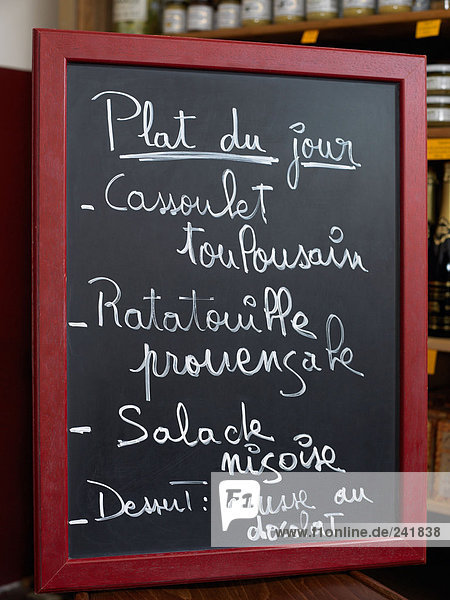 Plat du jour
- Cassoulet
toulousain
- Ratatouille
provençale
- Salade
niçoise
- Dessert : mousse au
chocolat
F1 online
241838